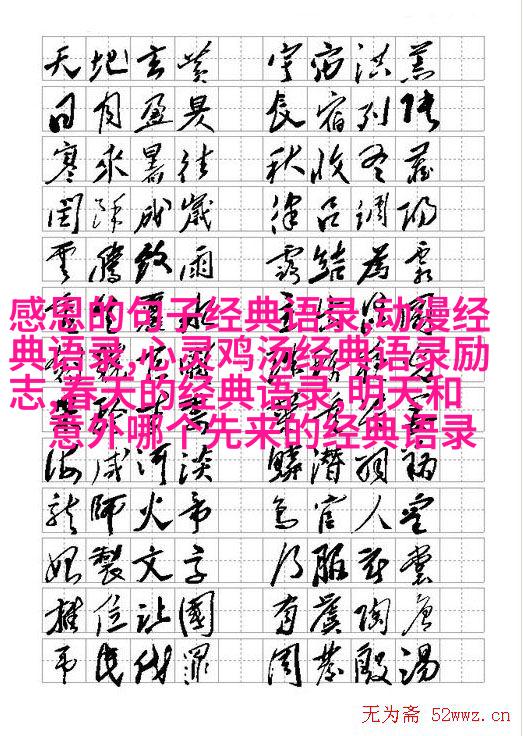 天地玄黄 宇宙洪荒
日月盈昃 辰宿列張
寒來暑往 秋收冬藏
閏餘成歲 律吕調陽
雲騰致雨 露結為霜
感恩的句子经典语录,动漫经
典语录,心灵鸡汤经典语录励
志,春天的经典语录,明天和
意外哪个先来的经典语录
海咸河淡 鱗潛羽翔
龍師火帝 鳥官人皇
始製文字 乃服衣裳
推位讓國 有虞陶唐
弔民伐罪 周發殷湯
无为斋 52wwz.cn